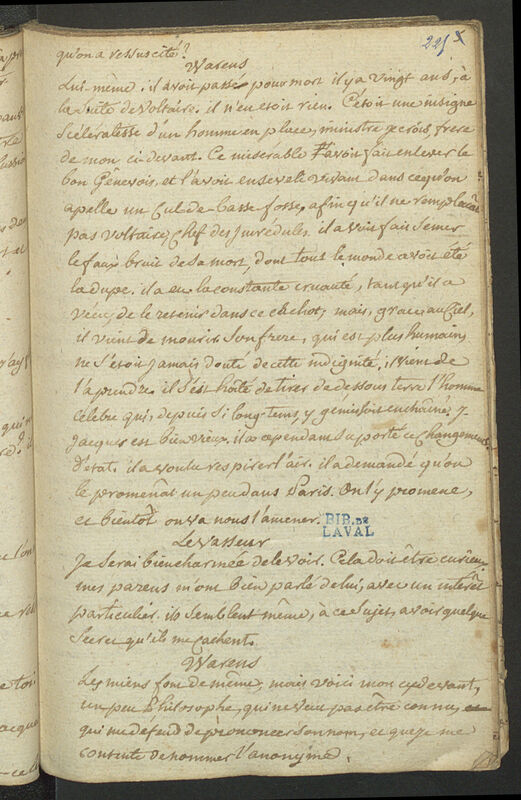 225
qu'on a ressuscité?
Warens
Lui même. il avoit passé pour mort il y a vingt ans, à
la suite de Voltaire. il n'en étoit rien. C'étoit une insigne
Scélératesse d'un homme en place, ministre je crois, frere
de mon ci devant. Ce misérable l'avoit fait enlever le
bon Génevois, et l'avoit enseveli vivant dans ce qu'on
apelle un Cul de basse fosse, afin qu'il ne remplaçât
pas voltaire, Chef des Incrédules. il avoit fait semer
le faux bruit de sa mort, dont tout le monde avoit été
la dupe. il a eu la constante cruauté, tant qu'il a
vécu, de le retenir dans ce cachot; mais, grace au Ciel,
il vient de mourir. Son frere, qui est plus humain,
ne s'étoit jamais douté de cette indignité; il vient de
l'aprendre. il s'est hâté de tirer de dessous terre l'homme
célèbre qui, depuis si long-tems, y gémissoit enchaîné. J.
Jacques est bien vieux. il a cependant suporté ce changement
d'état. il a voulu respirer l'air. il a demandé qu'on
le promenât un peu dans Paris. On l'y promene,
et bientôt on va nous l'amener.
BIB. DE
LAVAL
Levasseur
Je serai bien charmée de le voir. Cela doit être curieux
mes parens m'ont bien parlé de lui, avec un intérêt
particulier. ils semblent même, à ce sujet, avoir quelque
secret qu'ils me cachent.
Warens
Les miens font de même, mais voici mon cy devant,
un peu Philosophe, qui ne veut pas être connu,
qui me défend de prononcer son nom, et que je me
contente de nommer l'anonyme.